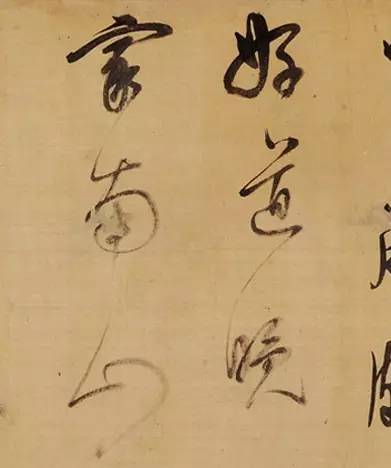 好道晚
家南山